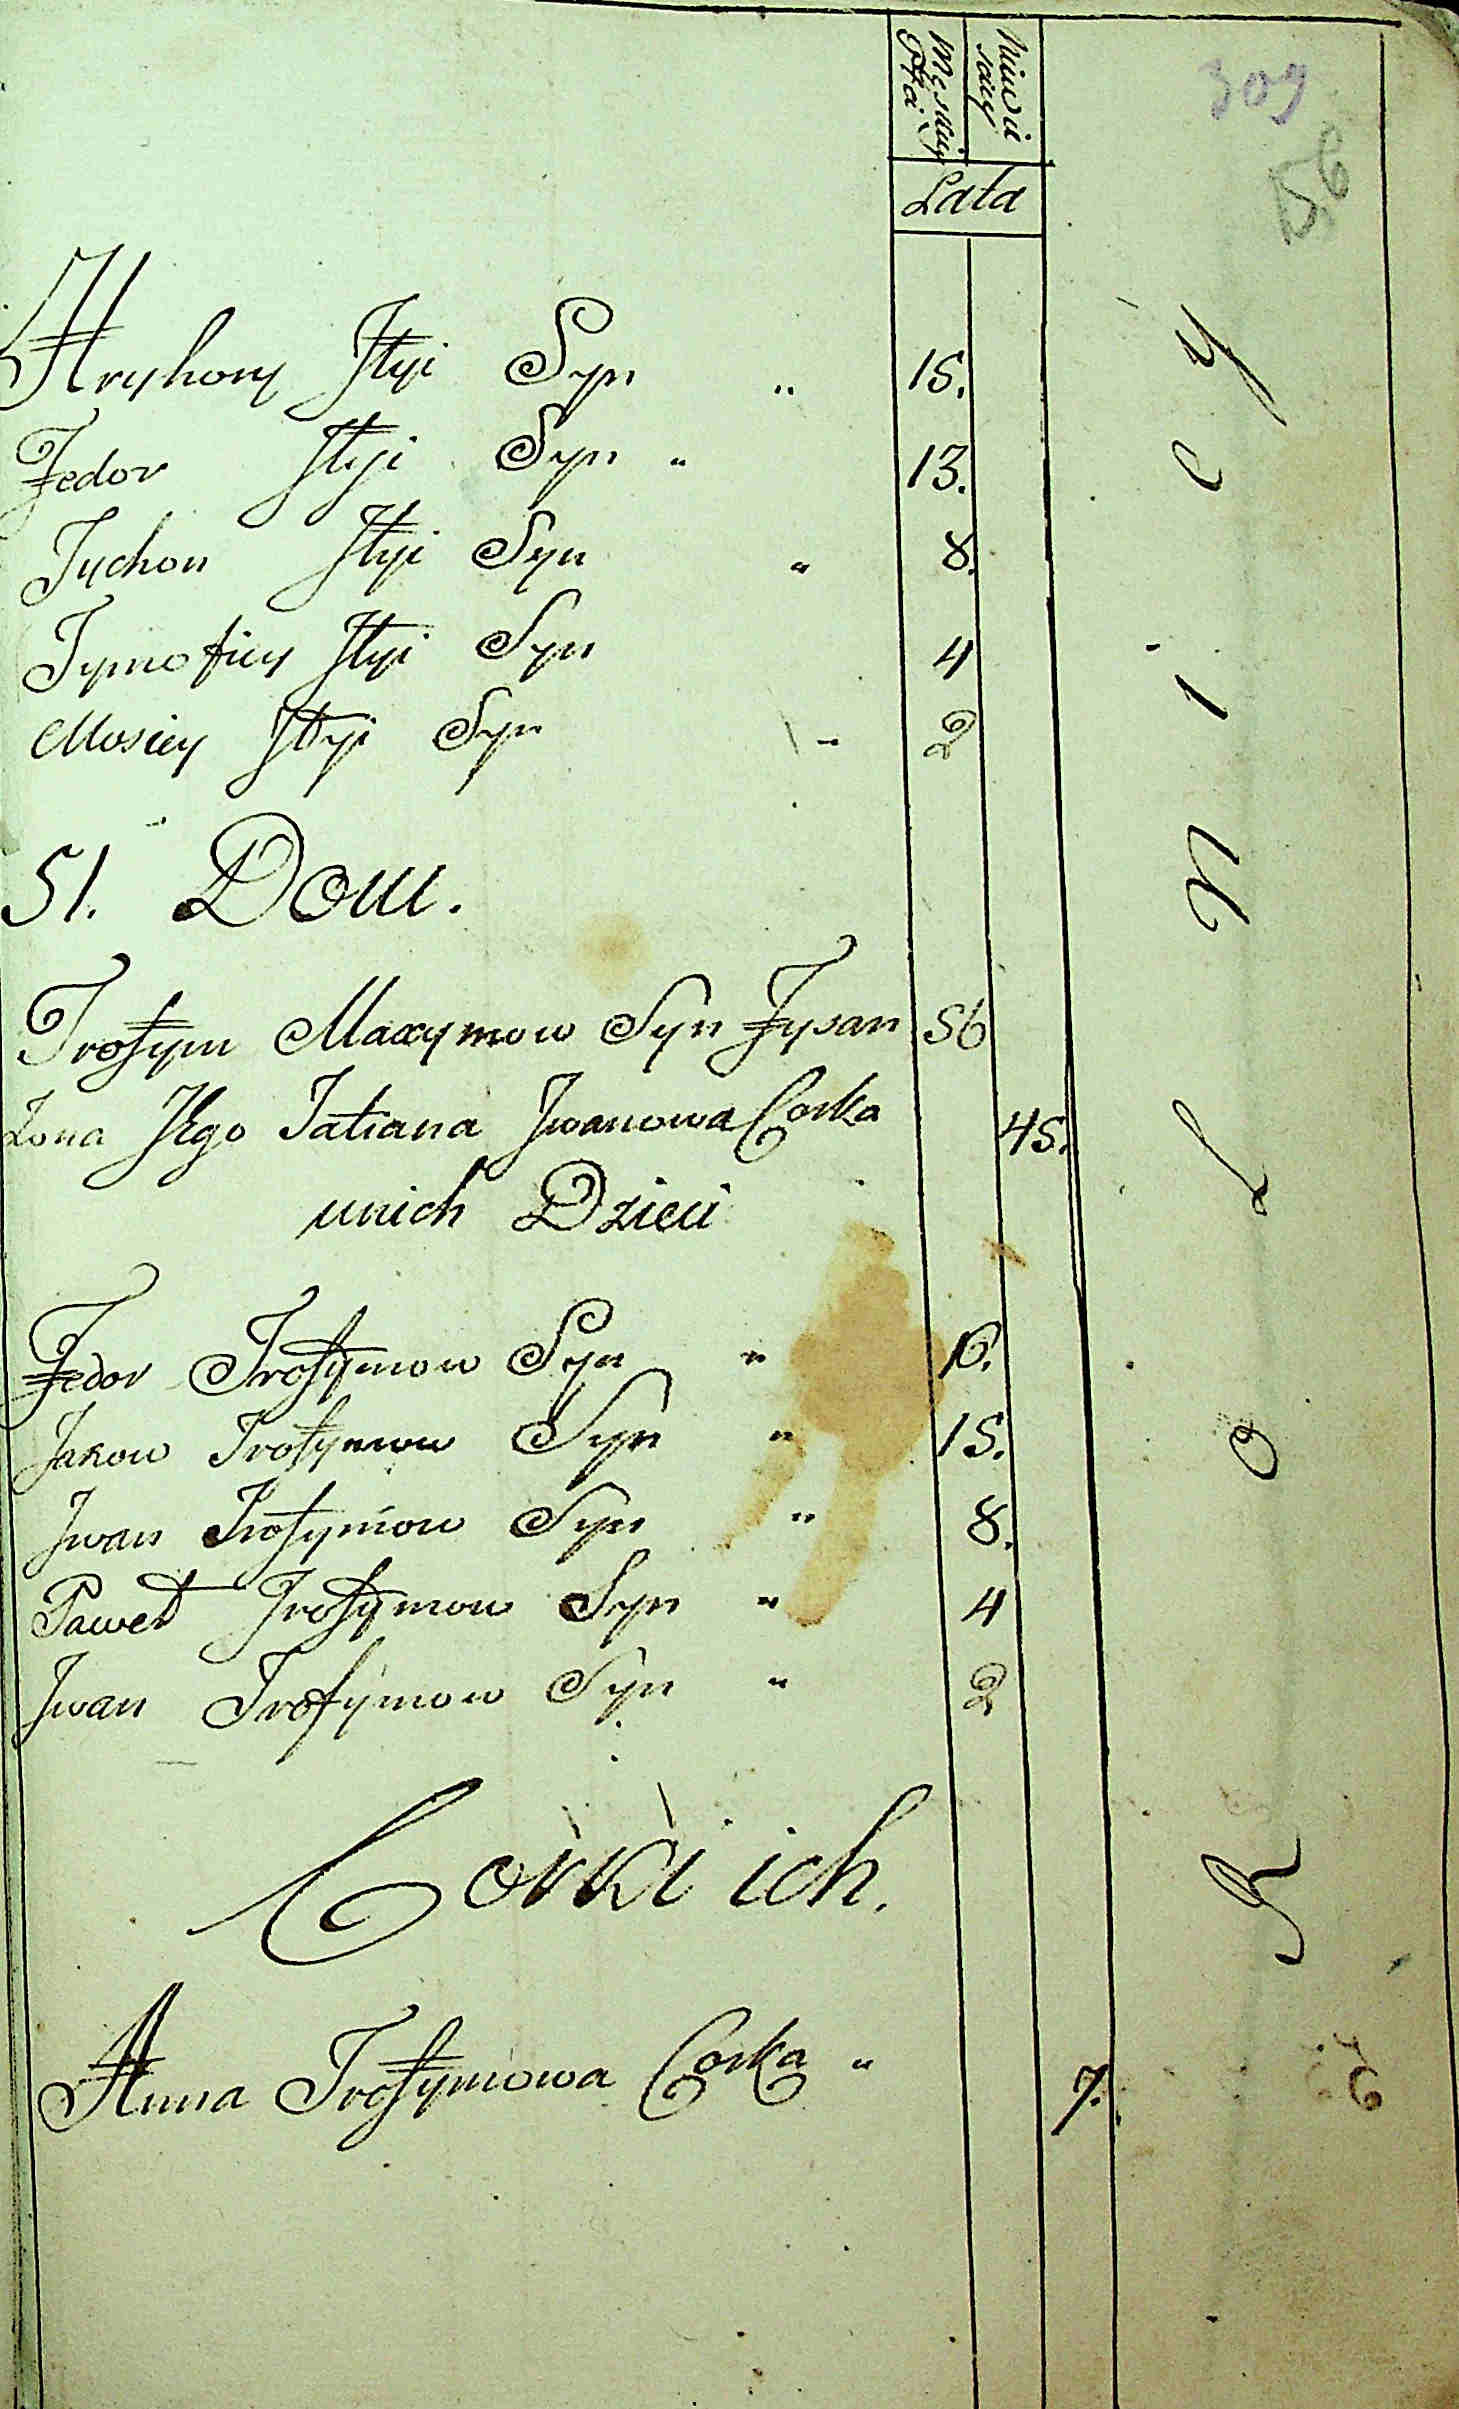 Męskiey Płci
Niewia
309
56
Lata
Hryhory Jłyi Syn " 15.
Fedor Jłyi Syn " 13.
Tychon Jłyi Syn " 8.
Tymofiey Jłyi Syn 4
Mosiey Jłyi Syn " 2
51. Dom.
Trofym Maxymow Syn 56
Zona Jego Tatiana Jwanowa Corka 45.
unich Dzieci
Fedor Trofymow Syn "
Jakow Trofymow Syn " 15.
Jwan Trofymow Syn " 8.
Paweł Trofymow Syn " 4
Jwan Trofymow Syn " 2
Corki ich.
Anna Trofymowa Corka " 7.
R o l n i c y